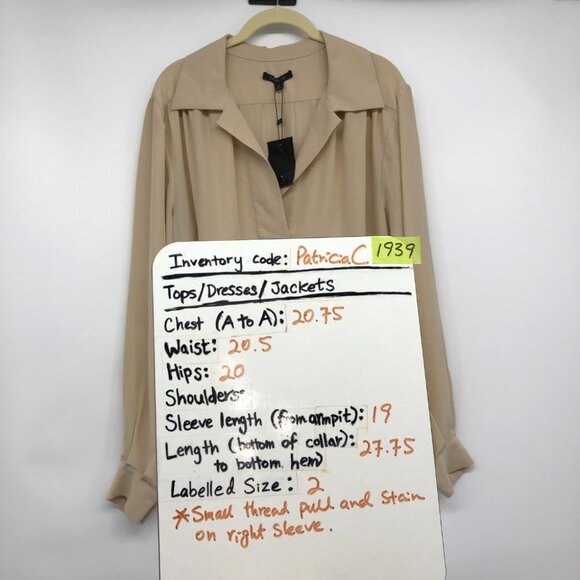 Inventory code: Patricia C 1939
Tops/Dresses/Jackets
Chest (A to A): 20.75
Waist: 20.5
Hips: 20
Shoulders:
Sleeve length (from armpit): 19
Length (bottom of collar): 27.75
to bottom hem)
Labelled Size: 2
*Small thread pull and Stain
on right Sleeve.